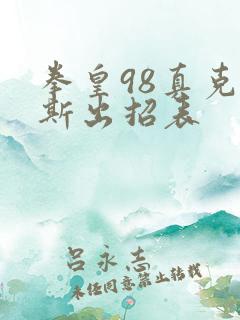 拳皇98真克
斯出招表
吕永志
未经同意禁止转载